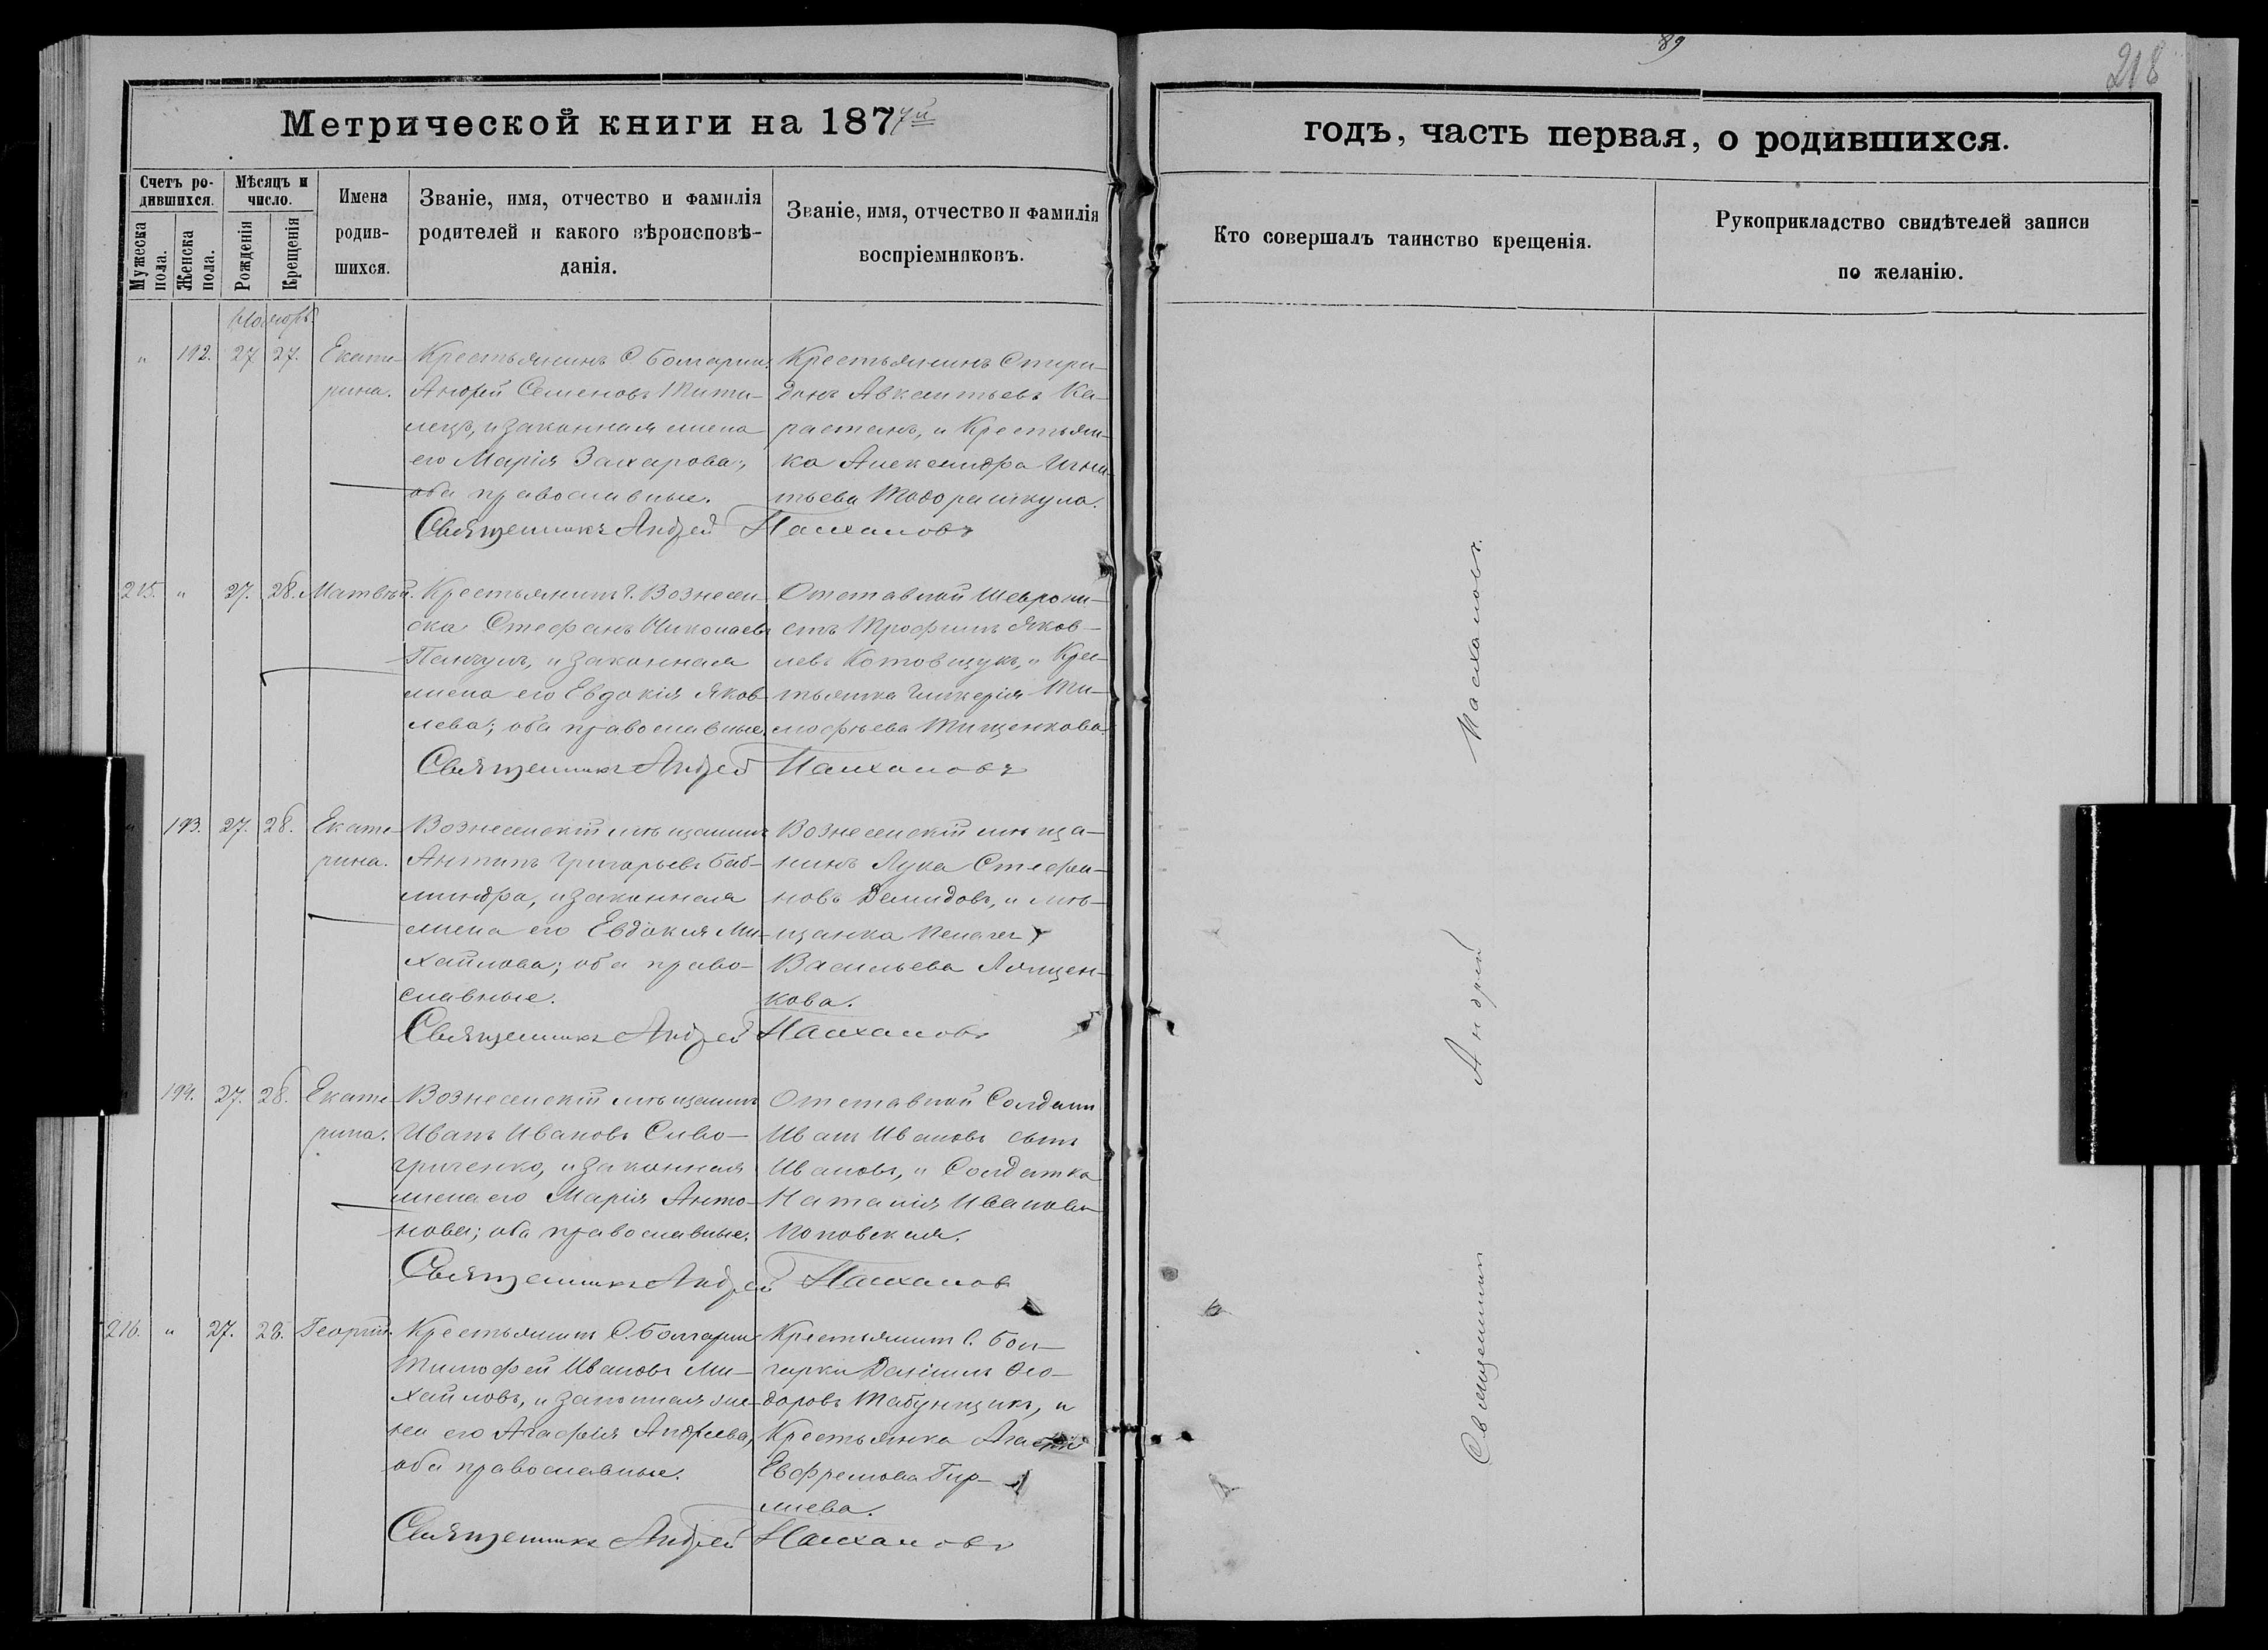 89
218
Метрической книги на 1877й
годъ, часть первая, о родившихся.
Счетъ родившихся.
Мужеска пола.
Женска пола.
Мѣсяцъ и число.
Рожденія
Крещенія
Имена родив-
шихся.
Званіе, имя, отчество и фамилія
родителей и какого вѣроисповѣ-
данія.
Званіе, имя, отчество и фамилія
воспріемниковъ.
Кто совершалъ таинство крещенія.
Рукоприкладство свидѣтелей записи
по желанію.
Ноябрь.
" 192. 27 27. Екате-
рина.
Крестьянинъ С. Болгарки
Андрей Семеновъ
и законная жена
его Марія Захарова;
оба православные.
Крестьянинъ Спири-
донъ Авксентьевъ Ка-
растанъ, и Крестьян-
ка Александра Игна-
тьева
Священникъ Андрей Пасхаловъ
215. " 27. 28. Матвѣй.
Крестьянинъ г. Вознесен-
ска Стефанъ Николаевъ
и законная
жена его Евдокія Яков-
лева; оба православные
Отставной Шеврони-
стъ Трофимъ Яков-
левъ Котовщукъ, и Крес-
тьянка Гликерія Ти-
мофѣева Тищенкова
Священникъ Андрей Пасхаловъ
" 193. 27. 28. Екате-
рина.
Вознесенскій мѣщанинъ
Антипъ Григорьевъ Баб-
и законная
жена его Евдокія Ми-
хайлова; оба право-
славные.
Вознесенскій мѣща-
нинъ Лука Стефа-
новъ Демидовъ, и мѣ-
щанка Пелагея
Васильева Лящен-
кова.
Священникъ Андрей Пасхаловъ
194. 27. 28. Екате-
рина.
Вознесенскій мѣщанинъ
Иванъ Ивановъ Сиво-
гриченко, и законная
жена его Марія Анто-
нова; оба православные.
Отставной Солдатъ
Иванъ Ивановъ сынъ
Ивановъ, и Солдатка
Наталія Иванова
Поповская.
Священникъ Андрей Пасхаловъ
216. " 27. 28. Георгій.
Крестьянинъ С. Болгарки
Тимофей Ивановъ Ми-
хайловъ, и законная же-
на его Агафія Андреева,
оба православные.
Крестьянинъ С. Бол-
гарки Даніилъ Ѳео-
доровъ Табунщикъ, и
Крестьянка Агафія
Евфремова Гир-
лиева.
Священникъ Андрей Пасхаловъ
Священникъ Андрей Пасхаловъ.